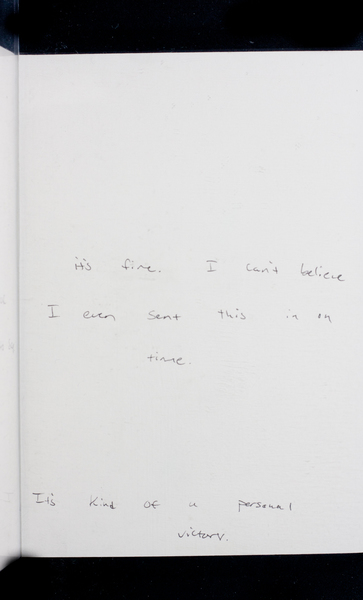 it's fine. I can't believe
I even sent this in on
time.
It's kind of a personal
victory.